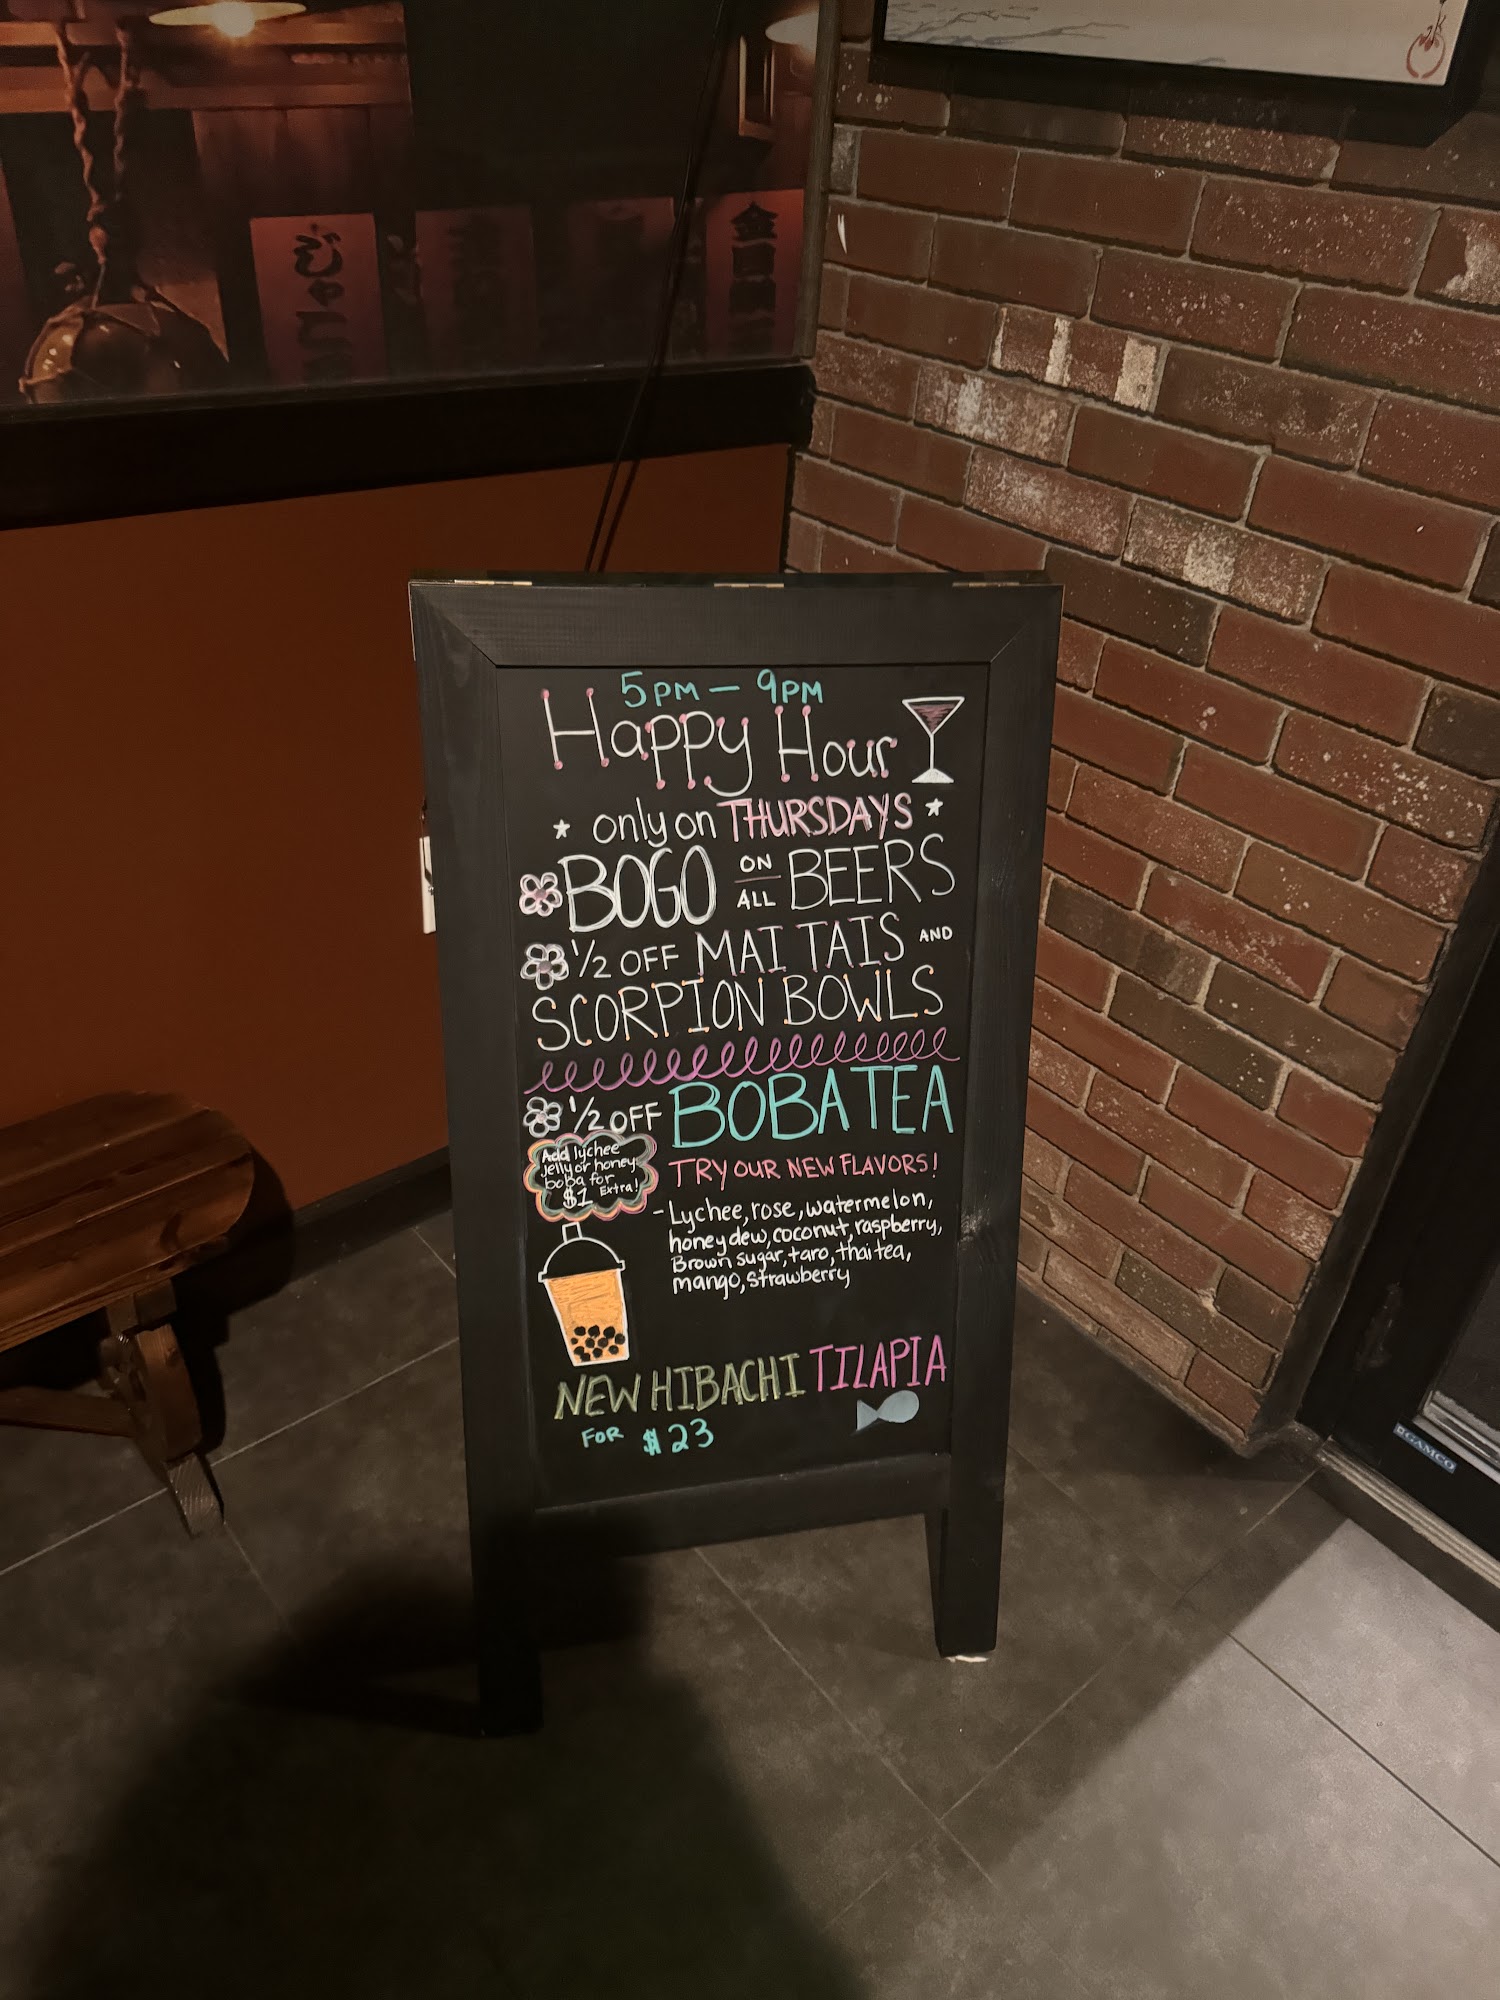 じゃこ
5PM — 9PM
Happy Hour
* only on THURSDAYS *
BOGO ON ALL BEERS
1/2 OFF MAI TAIS AND
SCORPION BOWLS
1/2 OFF BOBA TEA
Add lychee
jelly or honey
boba for
$1 Extra!
TRY OUR NEW FLAVORS!
- Lychee, rose, watermelon,
honeydew, coconut, raspberry,
Brown sugar, taro, thai tea,
mango, strawberry
NEW HIBACHI TILAPIA
FOR $23
GAMCO